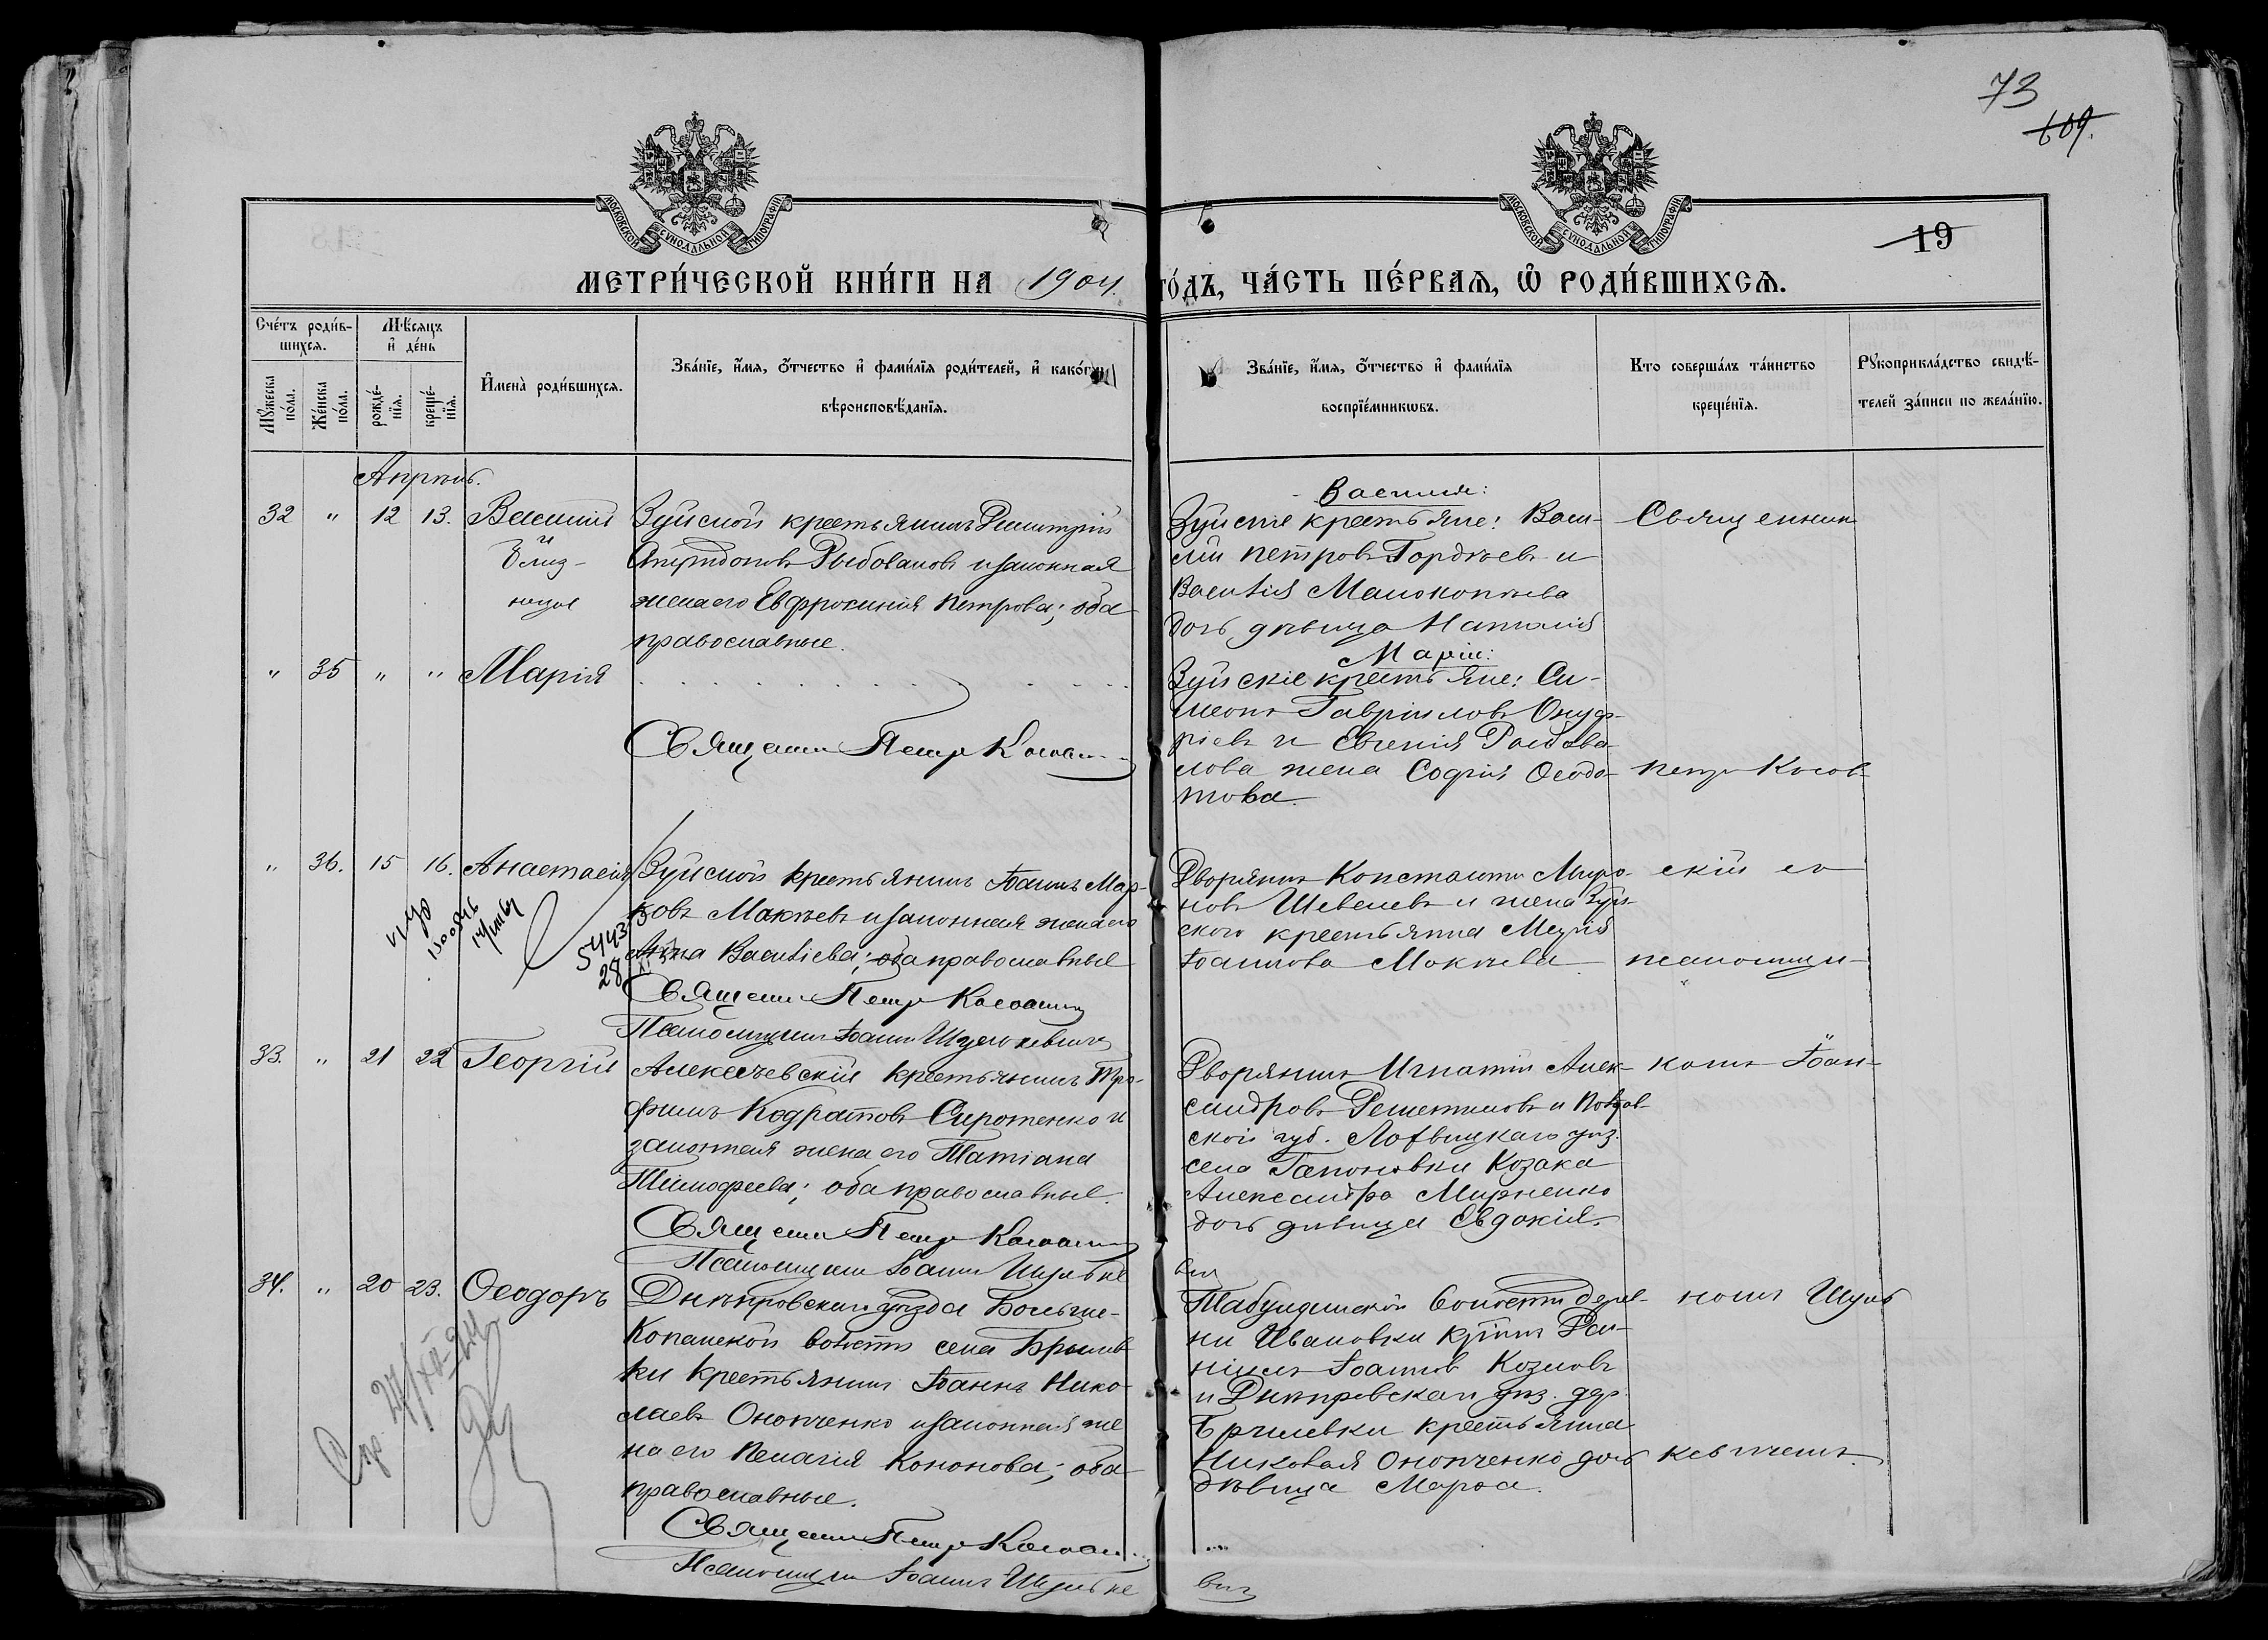 73
609.
МОСКОВСКОЙ СѴНОДАЛЬНОЙ ТИПОГРАФІИ
МОСКОВСКОЙ СѴНОДАЛЬНОЙ ТИПОГРАФІИ
19
МЕТРИ́ЧЕСКОЙ КНИ́ГИ НА 1904
ГО́ДЪ, ЧА́СТЬ ПЕ́РВАѦ, Ѡ҆ РОДИ́ВШИХСѦ.
Сче́тъ роди́в-
шихсѧ.
Мꙋ́жеска по́ла.
Же́нска по́ла.
Мѣ́сѧцъ
и҆ де́нь
рожде́-
нїѧ.
креще́-
нїѧ.
И҆мена̀ роди́вшихсѧ.
Зва́нїе, и҆́мѧ, ѻ҆́тчество и҆ фами́лїѧ роди́телей, и҆ како́гѡ
вѣроисповѣ́данїѧ.
Зва́нїе, и҆́мѧ, ѻ҆́тчество и҆ фами́лїѧ
воспрїе́мникѡвъ.
Кто соверша́лъ та́инство
креще́нїѧ.
Рꙋкоприкла́дство свидѣ́-
телей за́писи по жела́нїю.
Апрѣль.
32 " 12 13. Василій
и
близ-
нецы
Зуйской крестьянинъ Димитрій
Спиридоновъ Рыбоваловъ и законная
жена его Евфросинія Петрова; оба
православные.
Василія:
Зуйскіе крестьяне: Васи-
лій Петровъ Гордѣевъ и
Василія Малокопѣева
дочь дѣвица Наталія
Священник
" 35 " " Марія
Священник Петръ
Маріи:
Зуйскіе крестьяне: Си-
меонъ Гавріиловъ Онуф-
ріевъ и Евгенія Рыбова-
лова жена Софія Ѳеодо-
това.
Петръ
" 36. 15 16. Анастасія
Зуйской крестьянинъ Іоаннъ Мар-
ковъ Мокѣевъ и законная жена его
Анна Васильева; оба православные
Священник Петръ
Псаломщикъ Іоаннъ
54435
28
Дворянинъ Константин Миро-
новъ Шевелевъ и жена Зуй-
ского крестьянина Марія
Іоаннова Мокѣева
скій съ
псаломщи-
33. " 21 22 Георгій
Алексѣевскій крестьянинъ Тро-
фимъ Кодратовъ Сиротенко и
законная жена его Татіана
Тимофеева; оба православные.
Священник Петръ
Псаломщикъ Іоаннъ
Дворянинъ Игнатій Алек-
сандровъ Решетиловъ и Полтав-
ской губ. Лохвицкаго уѣз.
села Гапоновки Козака
Александра Мирненко
дочь дѣвица Евдокія.
комъ Іоан-
34. " 20 23. Ѳеодоръ
Днѣпровскаго уѣзда Больше-
Копанской волости села Брилев-
ки крестьянинъ Іоаннъ Нико-
лаевъ Онопченко и законная же
на его Пелагія Кононова; оба
православные.
Священник Петръ
Псаломщикъ Іоаннъ
вич
Табулдинской волости дерев-
ни Ивановки крест.
Іоанновъ Козловъ
и Днѣпровскаго уѣз. дер.
Брилевки крестьянина
Николая Онопченко дочь
дѣвица Мароа.
номъ Шуль
кевичемъ.
вич